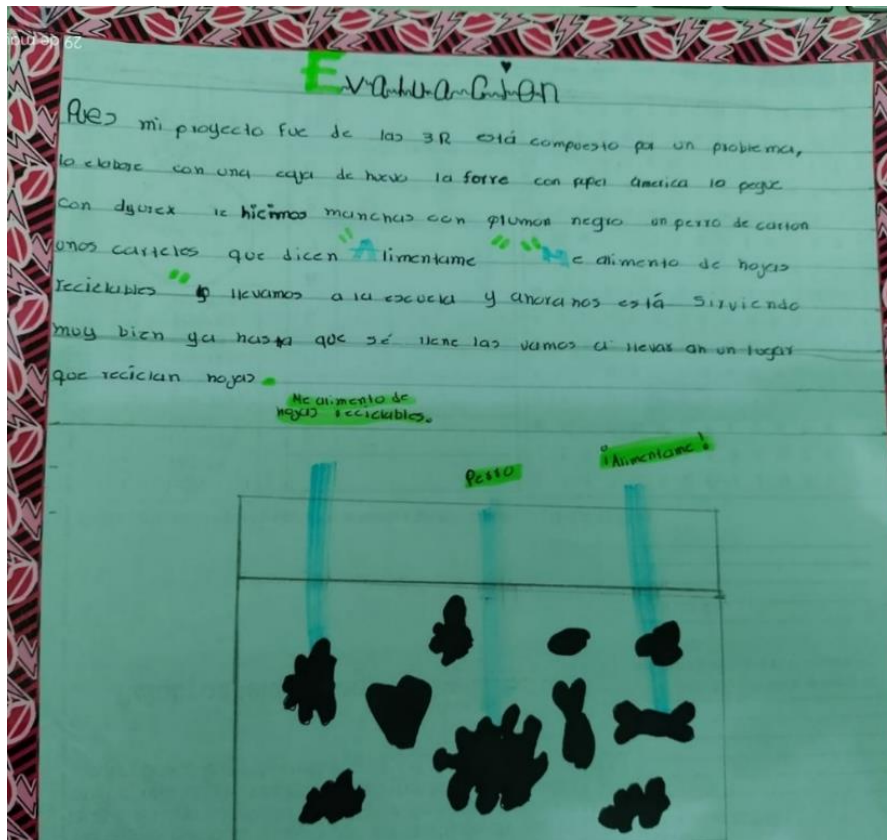 29 de ma
Evaluación
Pues mi proyecto fue de las 3R está compuesto por un problema,
lo elabore con una caja de huevo la forre con papel america lo pegue
con dyurex le hicimos manchas con plumon negro un perro de carton
unos carteles que dicen "Alimentame" "Me alimento de hojas
reciclables" lo llevamos a la escuela y ahora nos está sirviendo
muy bien ya hasta que sé llene las vamos a llevar an un lugar
que reciclan hojas.
Me alimento de
hojas reciclables.
Perro
¡Alimentame!